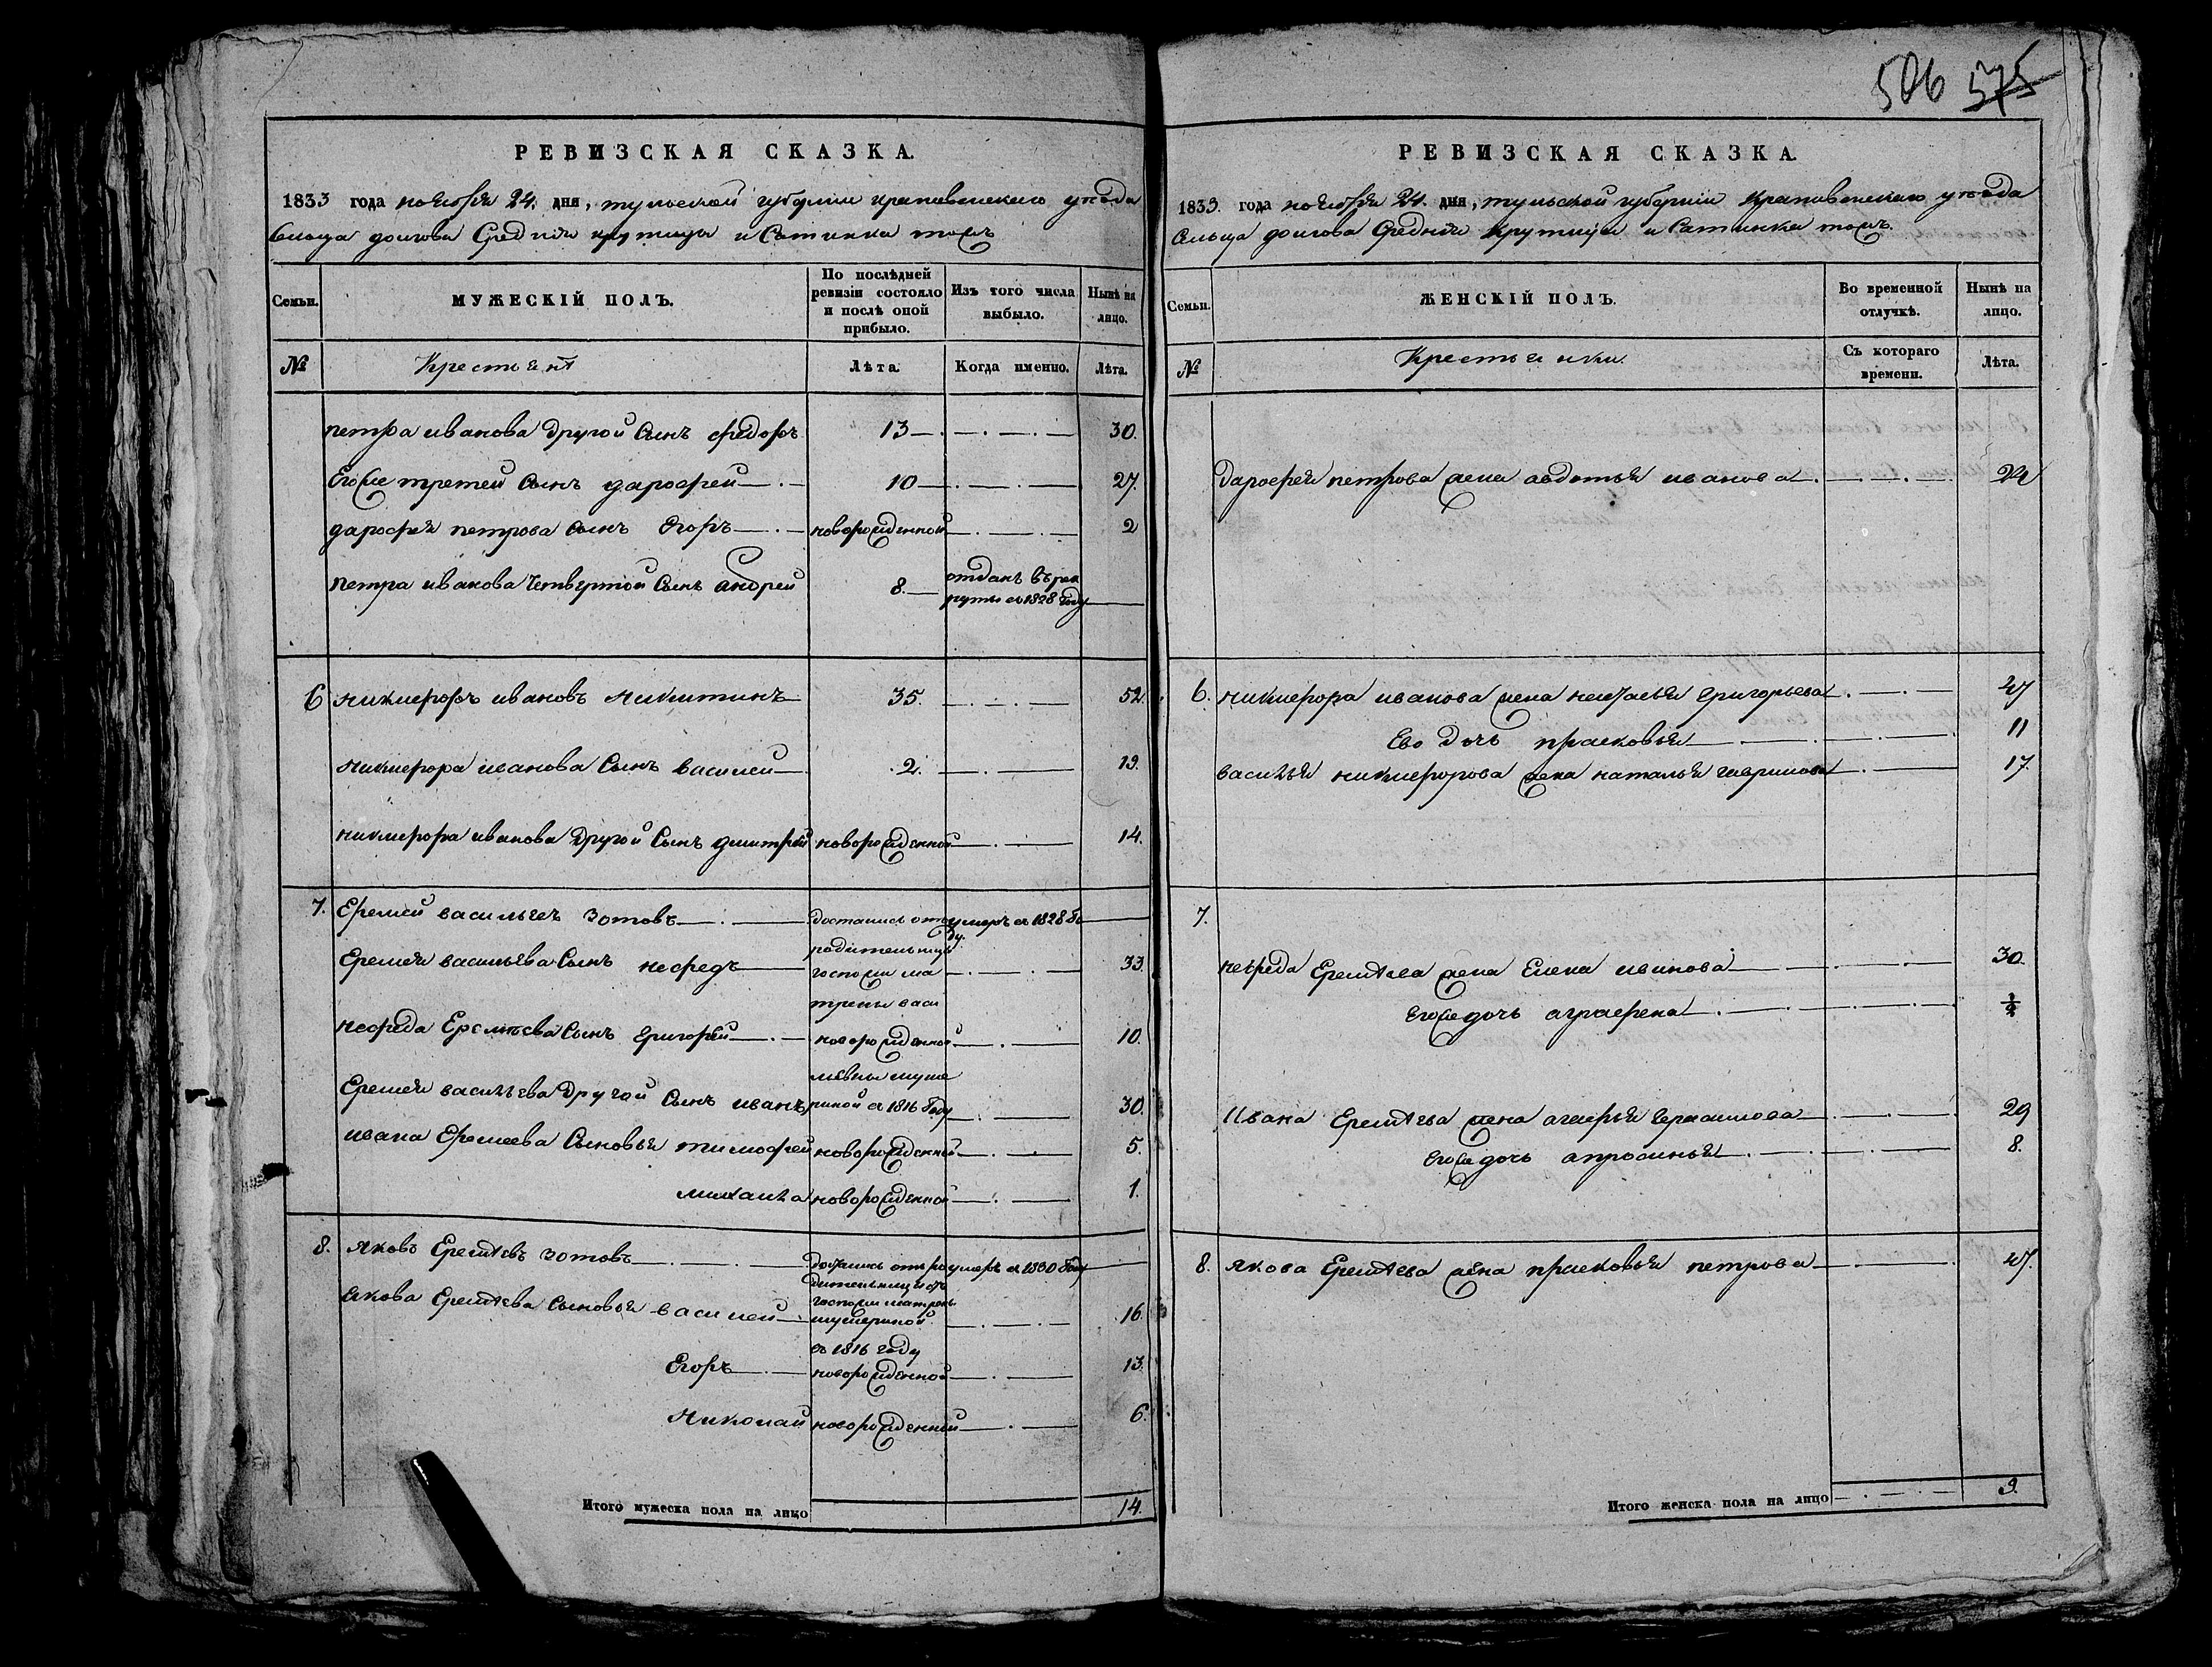 506 575
РЕВИЗСКАЯ СКАЗКА.
1833 года ноября 24. дня, тульской губернии крапивенскаго уезда
Сельца долгова Средния крутицы и Сатинка тожъ
Семьи.
МУЖЕСКІЙ ПОЛЪ.
По послѣдней ревизіи состояло и послѣ оной прибыло.
Изъ того числа выбыло.
Нынѣ на лицо.
№
Крестьянъ
Лѣта.
Когда именно.
Лѣта.
петра иванова другой Сынъ федоръ 13 30.
Егоже третей Сынъ дарофей 10 27.
дарофея петрова Сынъ Егоръ новорожденной 2
петра иванова четвертой Сынъ андрей 8. отданъ въ рек
руты въ 1828 году
6 никифоръ ивановъ никитинъ 35. 52.
никифора иванова Сынъ василей 2. 19.
никифора иванова другой Сынъ дмитрей новорожденной 14.
7. Еремей васильевъ зотовъ достались отъ умеръ въ 1828 го
ду.
родительницы
Еремея васильева Сынъ нефедъ госпожи ма 33
трены васи
нефеда Еремѣева Сынъ григорей новорожденной 10.
льевны шуше
Еремея васильева другой Сынъ иванъ риной въ 1816 году 30.
ивана Еремеева Сыновья тимофей новорожденный 5.
михаила новорожденной 1.
8. яковъ Еремѣевъ зотовъ достались отъ ро умеръ въ 1830 году
дительницы отъ
госпожи матрены
якова Еремѣева Сыновья василей шушериной 16.
въ 1816 году
Егоръ новорожденной 13.
николай новорожденный 6.
Итого мужеска пола на лицо 14.
РЕВИЗСКАЯ СКАЗКА.
1833. года ноября 24. дня, тульской губернии крапивенскаго уезда
Сельца долгова Средния крутицы и Сатинка тожъ.
Семьи.
ЖЕНСКІЙ ПОЛЪ.
Во временной отлучкѣ.
Нынѣ на лицо.
№
Крестьянки.
Съ котораго времени.
Лѣта.
дарофея петрова жена авдотья иванова 24
6. никифора иванова жена настасья григорьева 47
Ево дочь прасковья 11
василья никифорова жена наталья гаврилова 17.
7.
нефеда Еремѣева жена Елена иванова 30.
Егоже дочь аграфена ½
Ивана Еремѣева жена агафья 29
Егоже дочь апросинья 8.
8. якова Еремѣева жена прасковья петрова 47.
Итого женска пола на лицо 9.